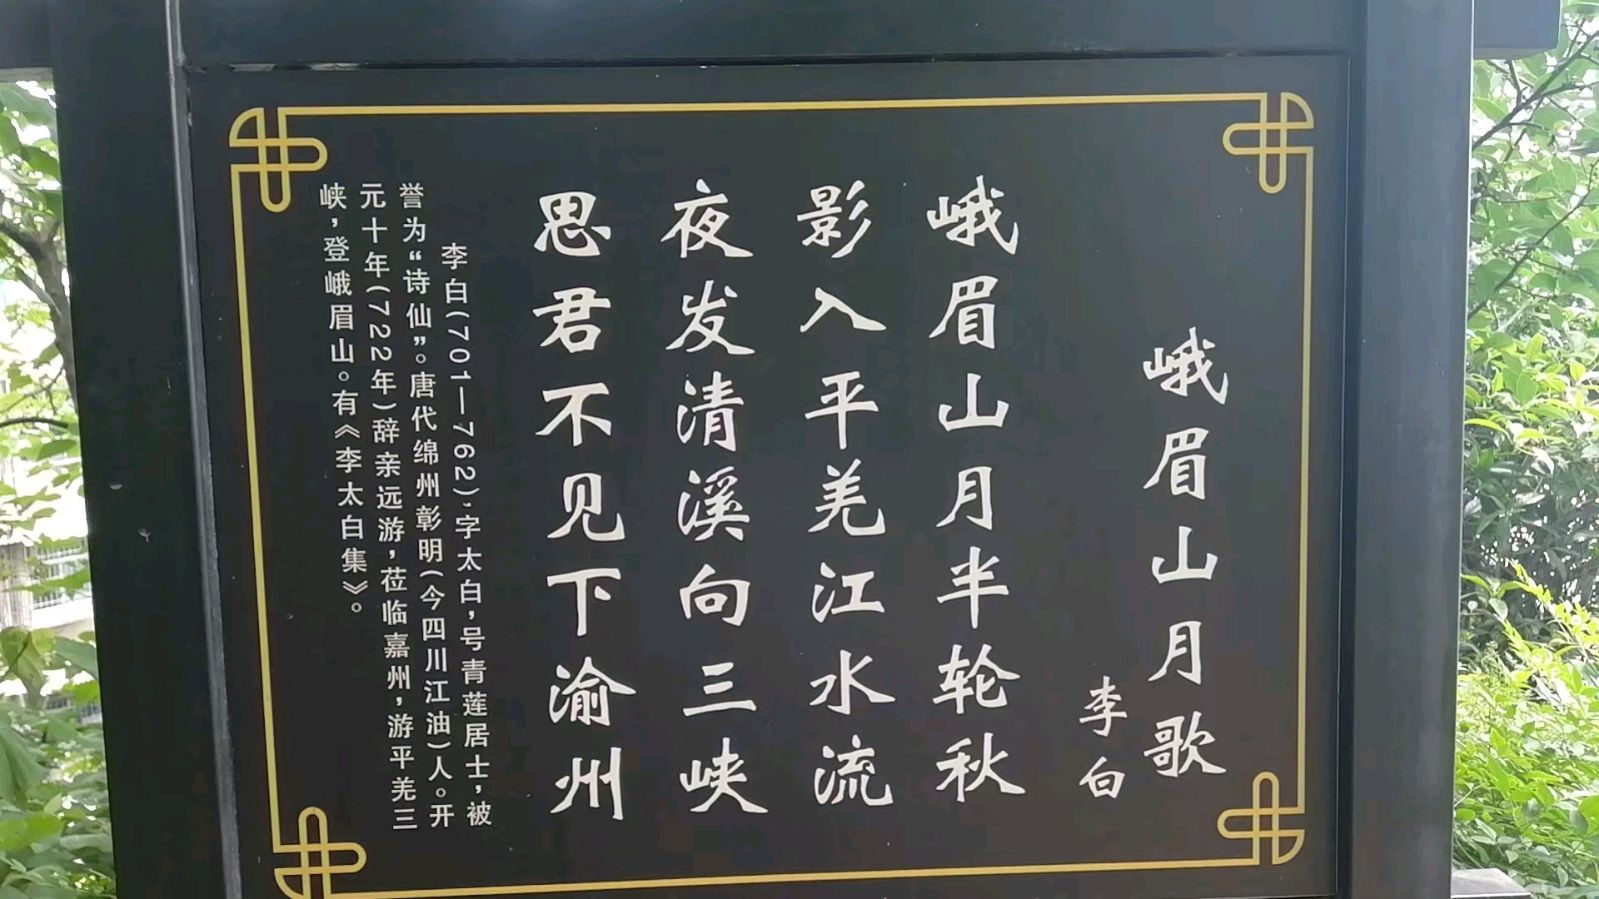 峨眉山月歌
李白
峨眉山月半轮秋
影入平羌江水流
夜发清溪向三峡
思君不见下渝州
李白(701—762),字太白,号青莲居士,被
誉为“诗仙”。唐代绵州彰明(今四川江油)人。开
元十年(722年)辞亲远游,莅临嘉州,游平羌三
峡,登峨眉山。有《李太白集》。